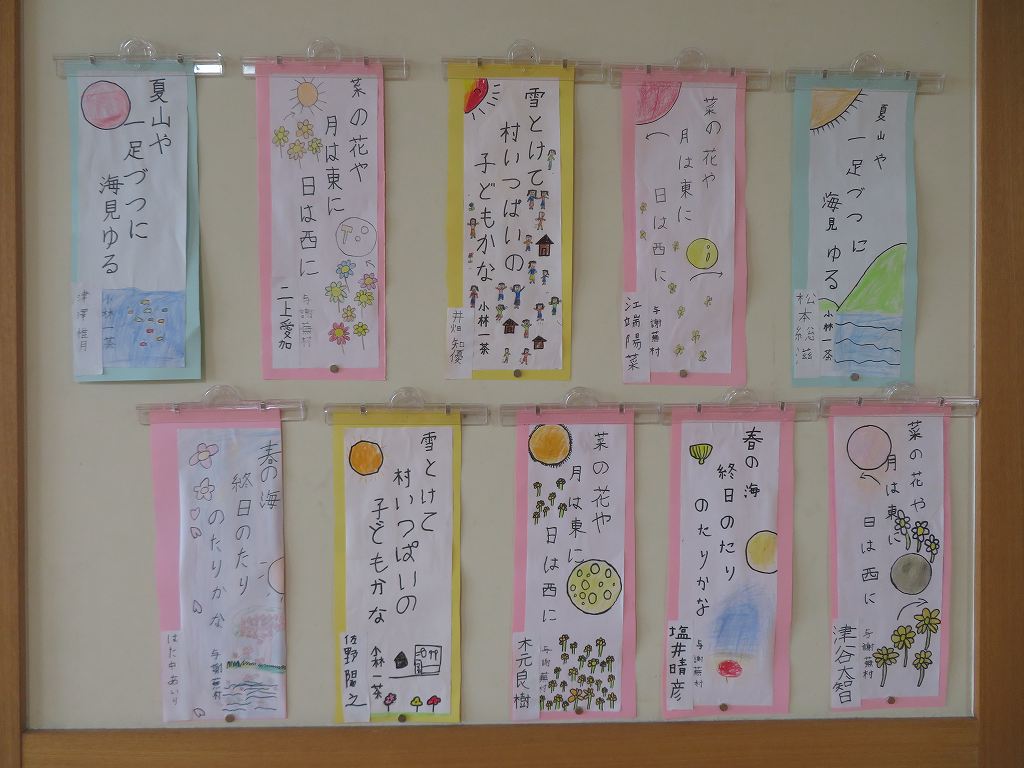 夏山や
一足づつに
海見ゆる
小林一茶
菜の花や
月は東に
日は西に
与謝蕪村
二上愛加
雪とけて
村いっぱいの
子どもかな
小林一茶
井畑知優
菜の花や
月は東に
日は西に
与謝蕪村
江端陽菜
夏山や
一足づつに
海見ゆる
小林一茶
春の海
終日のたり
のたりかな
与謝蕪村
はた中あいり
雪とけて
村いっぱいの
子どもかな
小林一茶
佐野陽之
菜の花や
月は東に
日は西に
与謝蕪村
木元良樹
春の海
終日のたり
のたりかな
与謝蕪村
塩井晴彦
菜の花や
月は東に
日は西に
与謝蕪村
津谷大智